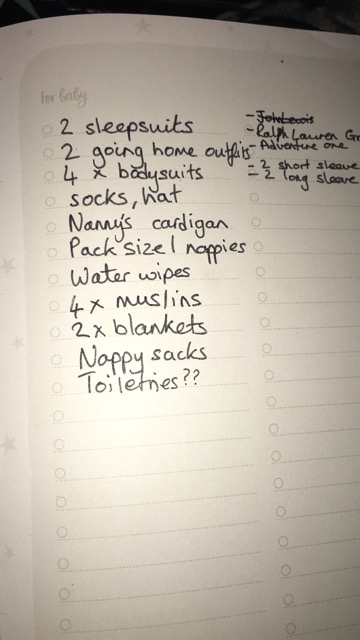 For baby
2 sleepsuits
- John Lewis
2 going home outfits
- Ralph Lauren
- Adventure one
4 x bodysuits
- 2 short sleeve
- 2 long sleeve
socks, hat
Nanny's cardigan
Pack size 1 nappies
Water wipes
4 x muslins
2 x blankets
Nappy sacks
Toiletries??